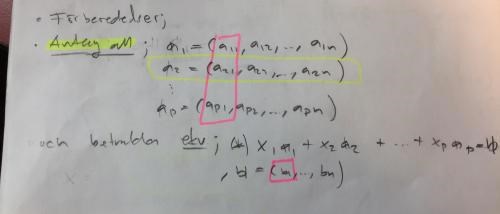 • Förberedelser;
• Antag att; a₁ = (a₁₁, a₁₂, ..., a₁ₙ)
a₂ = (a₂₁, a₂₂, ..., a₂ₙ)
⋮
aₚ = (aₚ₁, aₚ₂, ..., aₚₙ)
och betrakta ekv; (*) x₁a₁ + x₂a₂ + ... + xₚaₚ = b
, b = (b₁, ..., bₙ)